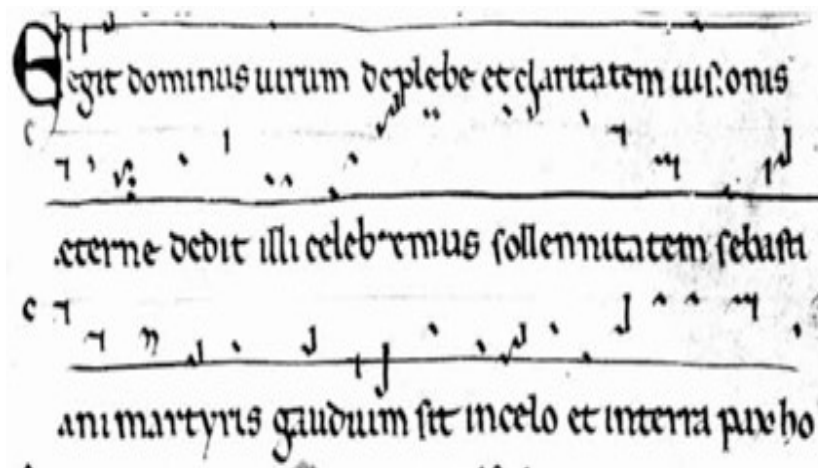 Egit dominus uirum deplebe et claritatem uisionis
c
æterne dedit illi celebremus sollennitatem sebasti
c
ani martyris gaudium sit incelo et interra pax ho